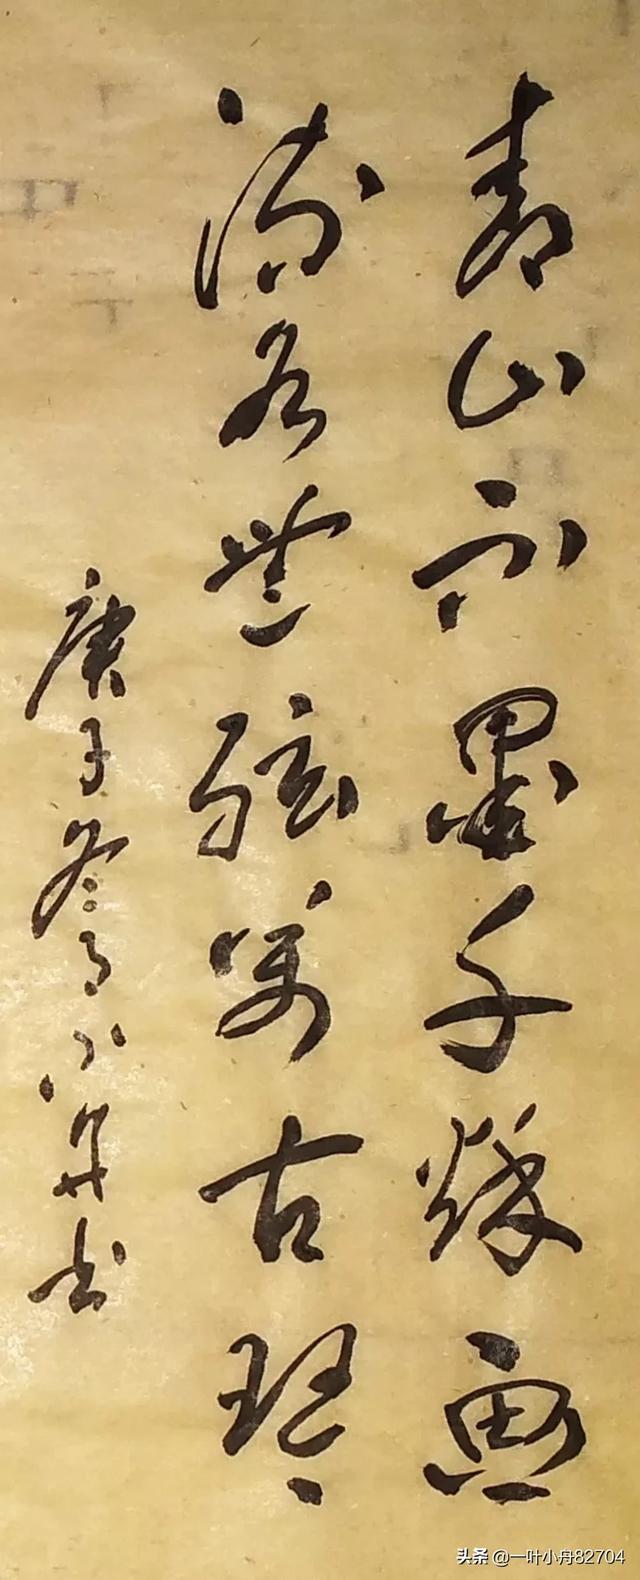 青山不墨千秋画
流水無弦萬古琴
庚子冬月小舟书
头条 @一叶小舟82704